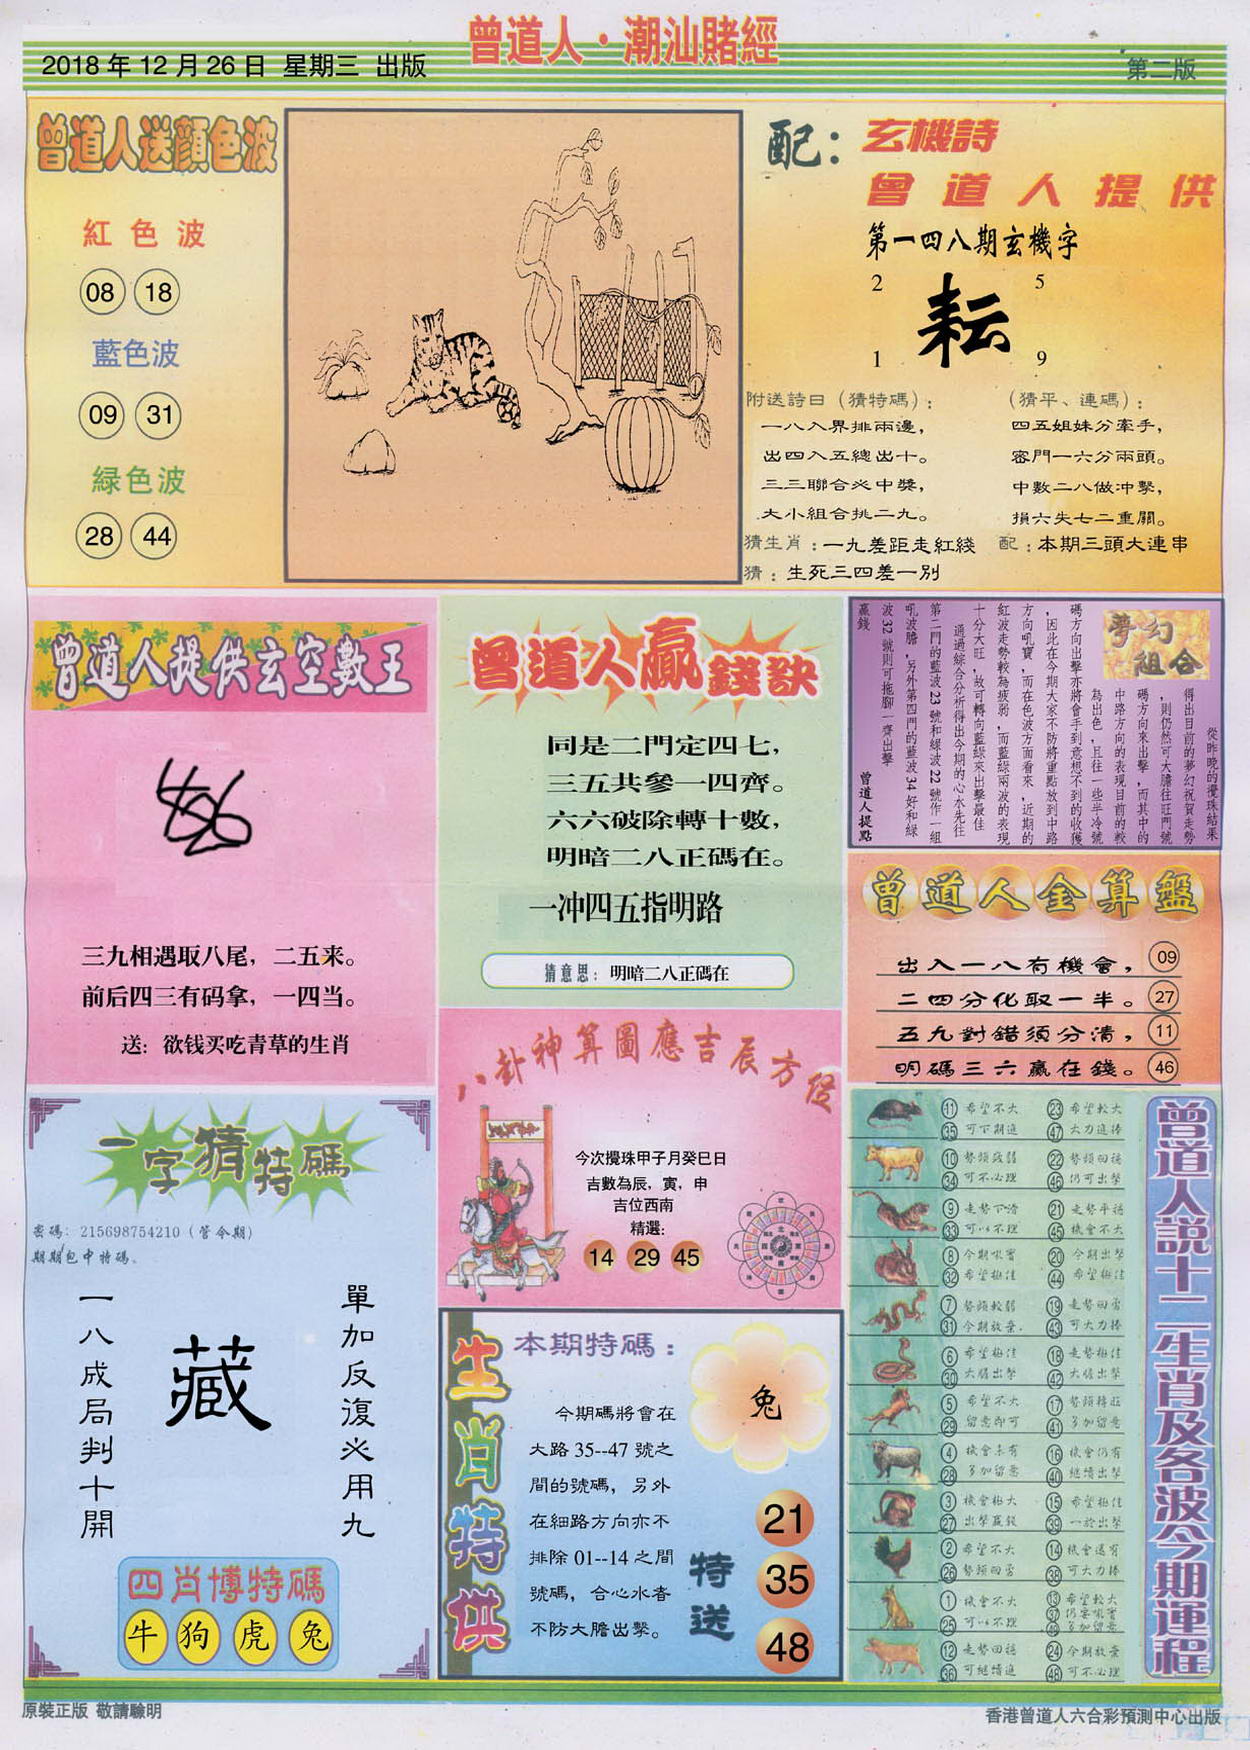 曾道人·潮汕賭經
2018年12月26日 星期三 出版
第二版
曾道人送顏色波
紅色波
08 18
藍色波
09 31
緑色波
28 44
配：玄機詩
曾道人提供
第一四八期玄機字
2 5
耘
1 9
附送詩曰（猜特碼）：
一八入界排兩邊，
出四入五總出十。
三三聯合必中獎，
大小組合挑二九。
（猜平、連碼）：
四五姐妹分牽手，
密門一六分兩頭。
中數二八做冲擊，
損六失七二重關。
猜生肖：一九差距走紅綫 配：本期三頭大連串
猜：生死三四差一别
曾道人提供玄空數王
三九相遇取八尾，二五来。
前后四三有码拿，一四当。
送：欲钱买吃青草的生肖
曾道人贏錢訣
同是二門定四七，
三五共參一四齊。
六六破除轉十數，
明暗二八正碼在。
一冲四五指明路
猜意思：明暗二八正碼在
夢幻
組合
從昨晚的攪珠結果
得出目前的夢幻祝賀走勢
，則仍然可大膽往旺門號
碼方向來出擊，而其中的
中路方向的表現目前的較
為出色，且往一些半冷號
碼方向出擊亦將會手到意想不到的收獲
，因此在今期大家不防將重點放到中路
方向吼寶，而在色波方面看來，近期的
紅波走勢較為疲弱，而藍緑兩波的表現
十分大旺，故可轉向藍緑來出擊最佳
通過綜合分析得出今期的心水先往
第二門的藍波23號和緑波22號作一組
吼波膽，另外第四門的藍波34好和緑
波32號則可拖腳一齊出擊
贏錢 曾道人提點
曾道人金算盤
出入一八有機會， 09
二四分化取一半。 27
五九對錯須分清， 11
明碼三六贏在錢。 46
八卦神算圖應吉辰方位
今次攪珠甲子月癸巳日
吉數為辰，寅，申
吉位西南
精選:
14 29 45
一字猜特碼
密碼：215698754210（管令期）
期期包中特碼。
單加反復必用九
藏
一八成局判十開
四肖博特碼
牛 狗 虎 兔
生肖特供
本期特碼：
兔
今期碼將會在
大路35--47號之
間的號碼，另外
在細路方向亦不
排除01--14之間
號碼，合心水者
不防大膽出擊。
特送
21
35
48
曾道人説十二生肖及各波今期運程
11 希望不大 23 希望較大
35 可下期進 47 大力進捧
10 勢頭較弱 22 勢頭回穩
34 可不必理 46 仍可出擊
9 走勢下滑 21 走勢平穩
33 可以不理 45 機會不大
8 今期吼寶 20 今期出擊
32 希望極佳 44 希望極佳
7 勢頭較弱 19 走勢回勇
31 今期放棄 43 可大力捧
6 希望極佳 18 走勢極佳
30 大膽出擊 42 大膽出擊
5 希望不大 17 勢頭轉旺
29 留意即可 41 多加留意
4 機會未有 16 機會仍有
28 多加留意 40 繼續出擊
3 機會極大 15 希望極佳
27 出擊贏錢 39 一於出擊
2 希望不大 14 機會還有
26 勢頭回勇 38 可大力捧
1 機會不大 13 希望較大
25 可以不理 37 仍要吼寶
49 多加留意
12 走勢回穩 24 今期放棄
36 可繼續進 48 可不必理
原裝正版 敬請驗明
香港曾道人六合彩預測中心出版